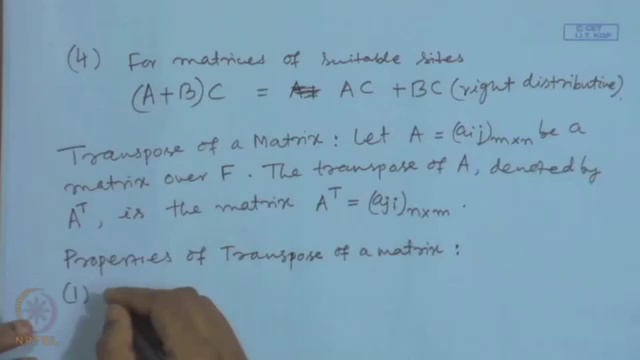 © CET
I.I.T. KGP
(4) For matrices of suitable sites
(A+B)C = AC + BC (right distributive)
Transpose of a Matrix : Let A = (aij)m×n be a
matrix over F. The transpose of A, denoted by
Aᵀ, is the matrix Aᵀ = (aji)n×m .
Properties of Transpose of a matrix :
(1)
NPTEL